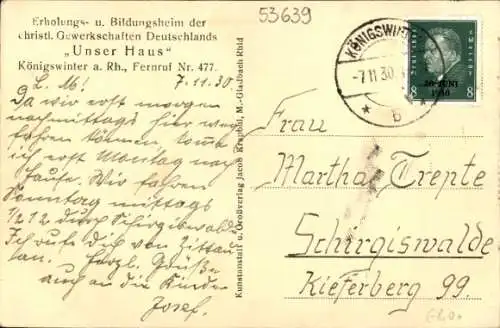 53639
Erholungs- u. Bildungsheim der
christl. Gewerkschaften Deutschlands
„Unser Haus"
Königswinter a. Rh., Fernruf Nr. 477.
7.11.30.
L. M!
Da wir erst morgen
nachmittags hier weg
fahren können komme
ich erst Montag nach
Hause. Wir fahren
Sonntag mittags
1/2 12 durch Schirgiswalde
Ich rufe Dich von Zittau
an. Herzl. Grüße
auch an die Kinder
Josef.
Kunstanstalt u. Großverlag Jacob Krapohl, M.-Gladbach Rhld
KÖNIGSWINTER
-7.11.30.
* b *
30. JUNI
1930
8 8
Frau
Martha Trepte
Schirgiswalde
Kieferberg 99.